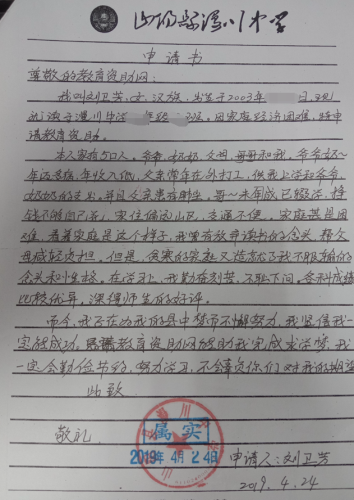 山阳县漫川中学
申请书
尊敬的教育资助网:
我叫刘卫芳,女,汉族,出生于2003年 日,现
就读于漫川中学 年级 班。因家庭经济困难,特申
请教育资助。
本人家有5口人。爷爷、奶奶、父母、母和我。爷爷奶
年迈患病,年收入低,父亲常年在外打工,但我上学和爷爷、
奶奶的支出,并且父亲患有肺。哥一未到成已辍学,挣
钱不够自己花,家住偏远山区,交通不便。家庭甚是困
难,看着家庭是这个样子,我曾有放弃读书的念头,帮父
母减轻负担。但是,贫寒的家庭又造就了我不服输的
念头和性格。在学习上,我勤奋刻苦,不耻下问,各科成绩
比较优异,深得师生的好评。
而今,我正在为我的高中梦而不懈努力,我坚信我一
定能成功,恳请教育资助网能助我完成求学梦,我
一定会勤俭节约,努力学习,不会辜负你们对我的期望
此致
敬礼
属实
2019年4月24日
申请人:刘卫芳
2019.4.24